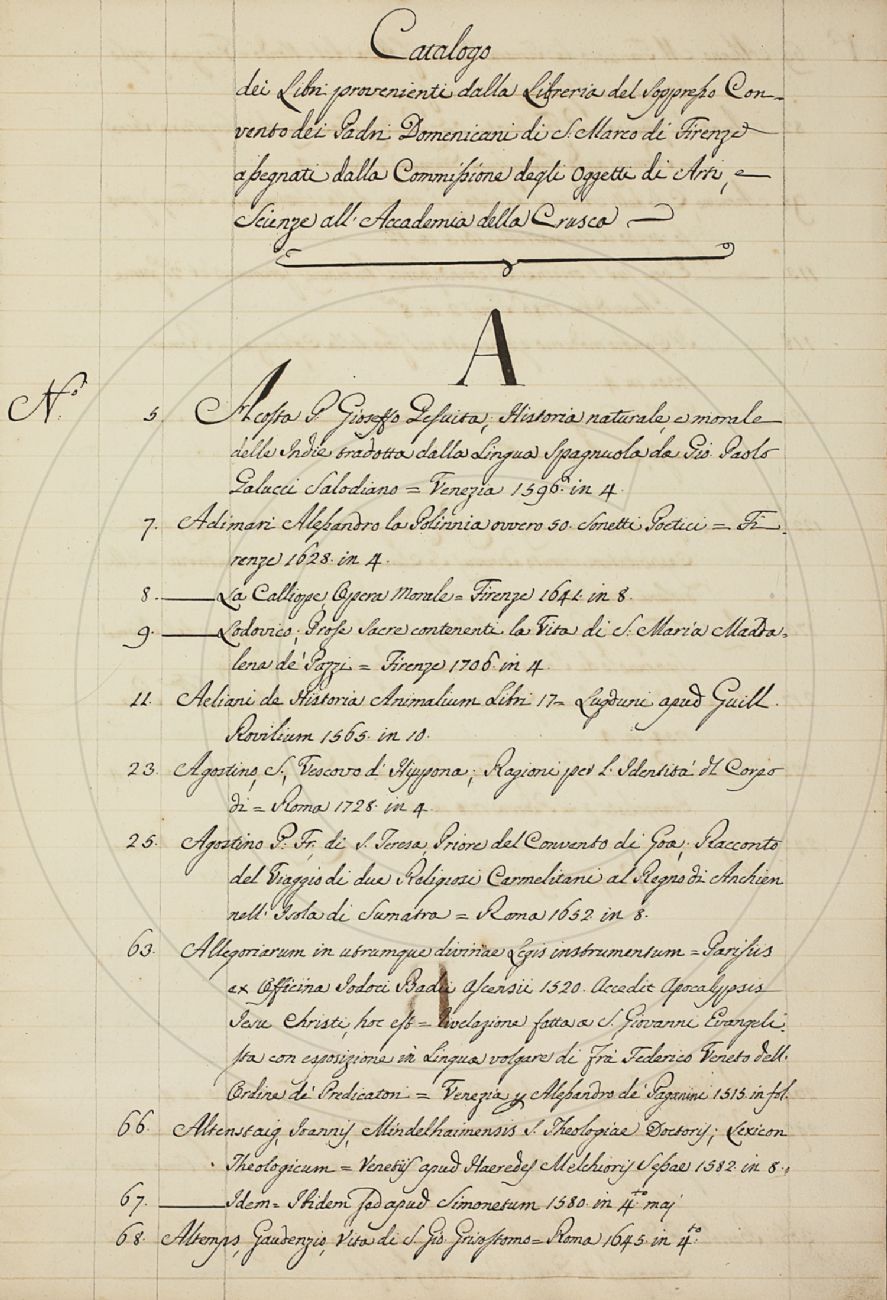 Catalogo
dei Libri provenienti dalla Libreria del Soppresso Con-
vento dei Padri Domenicani di S. Marco di Firenze
assegnati dalla Commissione degli Oggetti di Arti, e
Scienze all' Accademia della Crusca
A
N.o
5. Acosta P. Gioseffo Gesuita; Historia naturale, e morale
delle Indie tradotta dalla Lingua Spagnuola da Gio. Paolo
Galucci Salodiano = Venezia 1596. in 4.
7. Adimari Alessandro la Polinnia ovvero 50. Sonetti Poetici = Fi-
renze 1628. in 4.
8. ——— La Calliope, Opera Morale = Firenze 1641. in 8.
9. ——— Lodovico; Prose Sacre contenenti la Vita di S. Maria Madda-
lena de' Pazzi = Firenze 1706. in 4.
11. Aeliani de Historia Animalium Libri 17 = Lugduni apud Guill.
Rovilium 1565. in 10.
23. Agostino, S., Vescovo d' Hyppona; Ragioni per l' Identità dl Corpo
di = Roma 1728. in 4.
25. Agostino P. Fr. di S. Teresa, Priore del Convento di Goa; Racconto
del Viaggio di due Religiosi Carmelitani al Regno di Anchien
nell' Isola di Sumatra = Roma 1652. in 8.
63. Allegoriarum in utrumque divinae Legis instrumentum = Parisiis
ex Officina Jodoci Badii Ascensii 1520. Accedit Apocalypsis
Jesu Christi, hoc est = Rivelazione fatta a S. Giovanni Evangeli-
sta con esposizione in Lingua volgare di Frà Federico Veneto dell'
Ordine de' Predicatori = Venezia p Alessandro de' Paganini 1515. in fol.
66. Altenstaig, Joannis, Mindelhaimensis S. Theologiae Doctoris; Lexicon
Theologicum = Venetiis apud Haeredes Melchioris Sessae 1582. in 8.
67. ——— Idem = Ibidem sed apud Simonetum 1580. in 4.to maj
68. Altemps, Gaudenzio, Vita di S. Gio. Grisostomo = Roma 1645. in 4.to